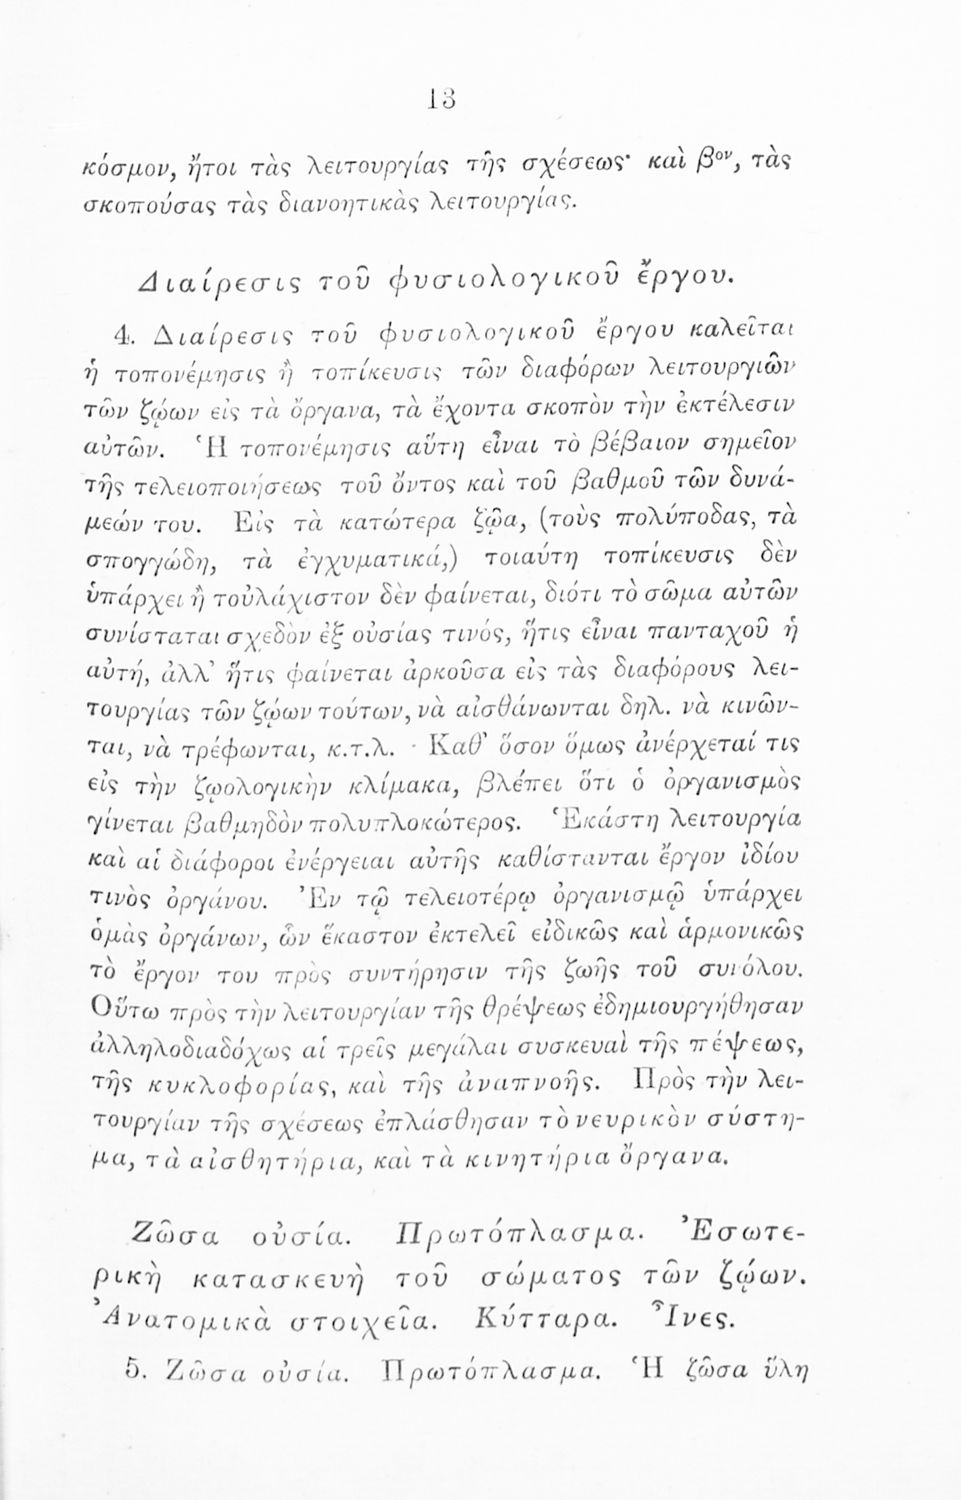 13
κόσμον, ἤτοι τὰς λειτουργίας τῆς σχέσεως· καὶ βον, τὰς
σκοπούσας τὰς διανοητικὰς λειτουργίας.
Διαίρεσις τοῦ φυσιολογικοῦ ἔργου.
4. Διαίρεσις τοῦ φυσιολογικοῦ ἔργου καλεῖται
ἡ τοπονέμησις ἢ τοπίκευσις τῶν διαφόρων λειτουργιῶν
τῶν ζῴων εἰς τὰ ὄργανα, τὰ ἔχοντα σκοπὸν τὴν ἐκτέλεσιν
αὐτῶν. Ἡ τοπονέμησις αὕτη εἶναι τὸ βέβαιον σημεῖον
τῆς τελειοποιήσεως τοῦ ὄντος καὶ τοῦ βαθμοῦ τῶν δυνά-
μεών του. Εἰς τὰ κατώτερα ζῷα, (τοὺς πολύποδας, τὰ
σπογγώδη, τὰ ἐγχυματικά,) τοιαύτη τοπίκευσις δὲν
ὑπάρχει ἢ τοὐλάχιστον δὲν φαίνεται, διότι τὸ σῶμα αὐτῶν
συνίσταται σχεδὸν ἐξ οὐσίας τινός, ἥτις εἶναι πανταχοῦ ἡ
αὐτή, ἀλλ’ ἥτις φαίνεται ἀρκοῦσα εἰς τὰς διαφόρους λει-
τουργίας τῶν ζῴων τούτων, νὰ αἰσθάνωνται δηλ. νὰ κινῶν-
ται, νὰ τρέφωνται, κ.τ.λ. Καθ’ ὅσον ὅμως ἀνέρχεταί τις
εἰς τὴν ζῳολογικὴν κλίμακα, βλέπει ὅτι ὁ ὀργανισμὸς
γίνεται βαθμηδὸν πολυπλοκώτερος. Ἑκάστη λειτουργία
καὶ αἱ διάφοροι ἐνέργειαι αὐτῆς καθίστανται ἔργον ἰδίου
τινὸς ὀργάνου. Ἐν τῷ τελειοτέρῳ ὀργανισμῷ ὑπάρχει
ὁμὰς ὀργάνων, ὧν ἕκαστον ἐκτελεῖ εἰδικῶς καὶ ἁρμονικῶς
τὸ ἔργον του πρὸς συντήρησιν τῆς ζωῆς τοῦ συνόλου.
Οὕτω πρὸς τὴν λειτουργίαν τῆς θρέψεως ἐδημιουργήθησαν
ἀλληλοδιαδόχως αἱ τρεῖς μεγάλαι συσκευαὶ τῆς πέψεως,
τῆς κυκλοφορίας, καὶ τῆς ἀναπνοῆς. Πρὸς τὴν λει-
τουργίαν τῆς σχέσεως ἐπλάσθησαν τὸ νευρικὸν σύστη-
μα, τὰ αἰσθητήρια, καὶ τὰ κινητήρια ὄργανα.
Ζῶσα οὐσία. Πρωτόπλασμα. Ἐσωτε-
ρικὴ κατασκευὴ τοῦ σώματος τῶν ζῴων.
Ἀνατομικὰ στοιχεῖα. Κύτταρα. Ἶνες.
5. Ζῶσα οὐσία. Πρωτόπλασμα. Ἡ ζῶσα ὕλη